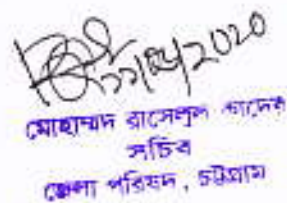 ২২/০৪/2020
মোহাম্মদ রাসেলুল কাদের
সচিব
জেলা পরিষদ, চট্টগ্রাম